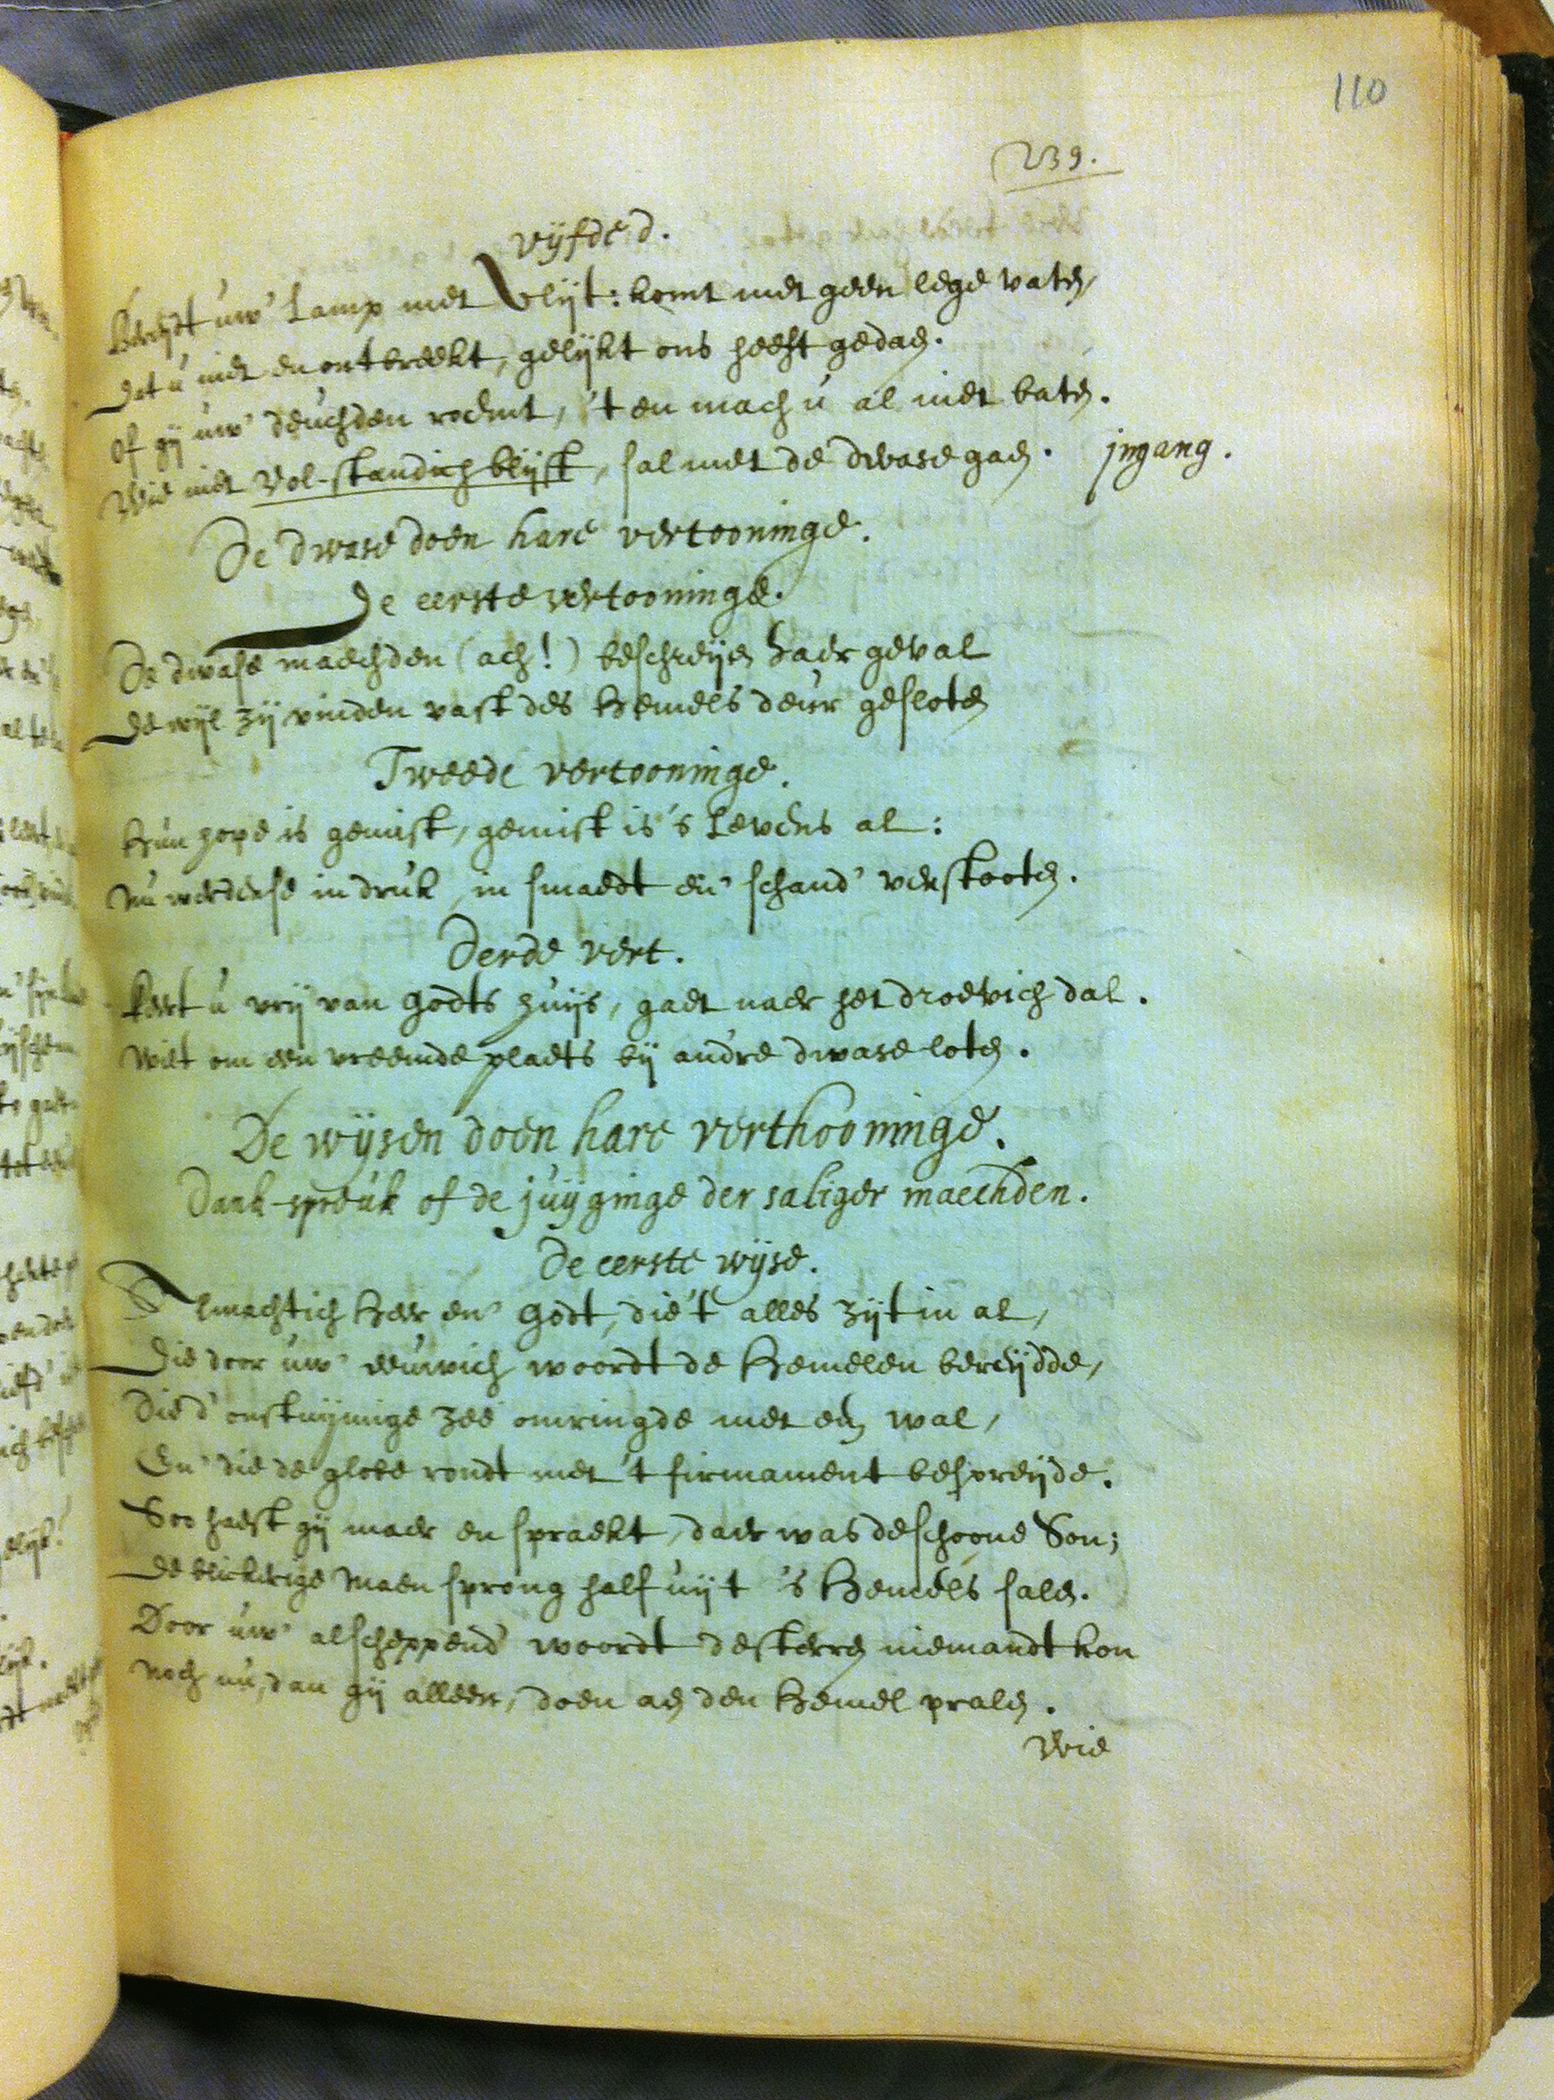 110
239.
vÿfde d.
Bereÿdt uw' Lamp met vlijt: komt met geen lege vaten,
Dat u niet en ontbreekt, gelÿkt ons heeft gedaen.
Of gÿ uw' deuchden roemt, 't en mach u al niet baten.
Wie niet vol-standich blÿft, sal met de dwase gaen. jngang.
De dwase doen hare vertooninge.
De eerste vertooninge.
De dwase maechden (ach!) beschreÿen haer geval
Dewÿl zÿ vinden vast des Hemels deur gesloten
Tweede vertooninge.
Hun hope is gemist, gemist is 's Levens al:
Nu werdense in druk, in smaedt en' schand' verstooten.
Derde vert.
kert u vrÿ van Godts huÿs, gaet naer het droevich dal.
Wilt om een vreemde plaets bÿ andre dwase loten.
De wÿsen doen hare verthooninge.
Dank-spreuk of de juÿginge der saliger maechden.
De eerste wÿse.
Almachtich Heer en' Godt, die 't alles zÿt in al,
Die door uw' eeuwich woordt de Hemelen bereÿdde,
Die d' onstuÿmige zee omringde met een wal,
En' die de globe rondt met 't firmament bespreÿde.
Soo haest gÿ maer en spraekt, daer was de schoone Son;
De blickrige Maen sprong half uÿt 's Hemels salen.
Door uw' alscheppend' woordt de sterren niemandt kon
Noch nu, dan gÿ alleen, doen aen den Hemel pralen.
Wie